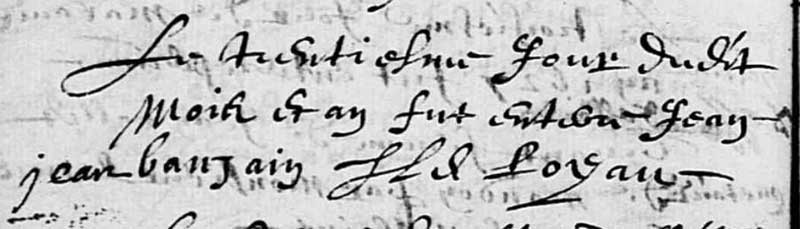 Le trentiesme Jour dudit
Mois et an fut enterré Jean
jean banjain